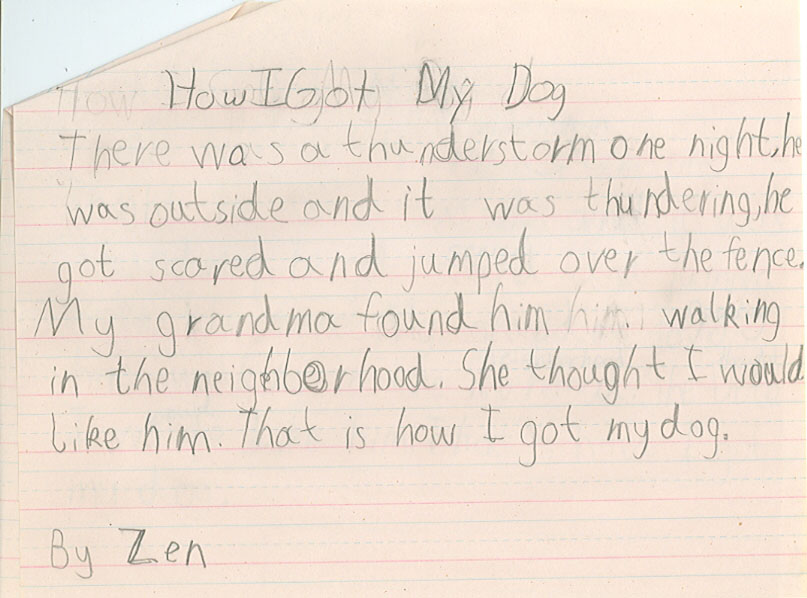 How I Got My Dog
There was a thunderstorm one night, he
was outside and it was thundering, he
got scared and jumped over the fence.
My grandma found him him walking
in the neighborhood. She thought I would
like him. That is how I got my dog.
By Zen